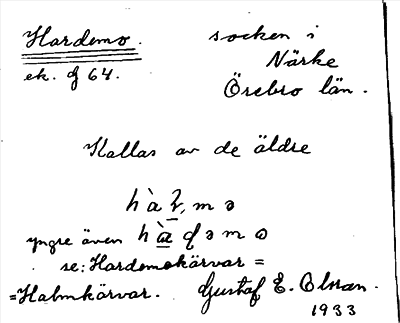 Hardemo.
socken i
Närke
ek. g 64.
Örebro län.
Kallas av de äldre
yngre även
se: Hardemokärvar =
= Halmkärvar. Gustaf E. Olsson.
1933